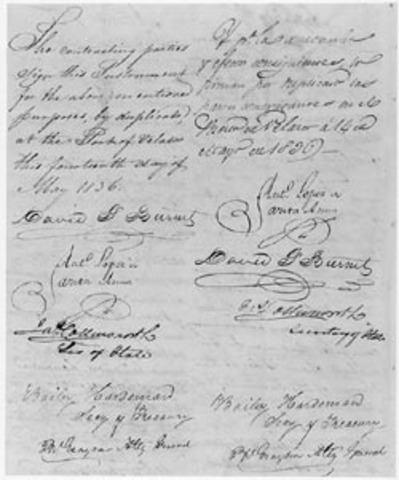 The contracting parties
Sign this Instrument
for the above mentioned
purposes, by duplicate,
at the Port of Velasco
this fourteenth day of
May 1836.
David G Burnet
Anto. Lopez de
Santa Anna
Jas Collinsworth
Sec of State
Bailey Hardeman
Secy of Treasury
P. W. Grayson Atty General
Y pa. la
y efectos consiguientes, lo
firman por duplicado las
partes
Puerto de Velasco á 14 de
Mayo de 1836
Anto. Lopez de
Santa Anna
David G Burnet
Jas Collinsworth
Secretary of State
Bailey Hardeman
Secy of Treasury
P. W. Grayson Atty General